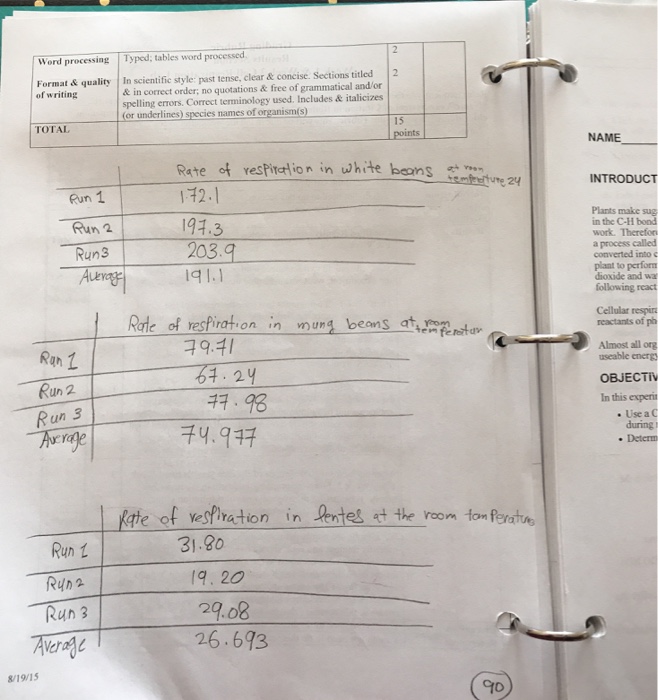 Word processing Typed; tables word processed. 2
Format & quality of writing In scientific style: past tense, clear & concise. Sections titled 2
& in correct order; no quotations & free of grammatical and/or
spelling errors. Correct terminology used. Includes & italicizes
(or underlines) species names of organism(s)
TOTAL 15 points
Rate of respiration in white beans at room temperture 24
Run 1 172.1
Run 2 197.3
Run 3 203.9
Average 191.1
Rate of respiration in mung beans at room
Run 1 79.71
Run 2 67.24
Run 3 77.98
Average 74.977
Rate of respiration in lentes at the room
Run 1 31.80
Run 2 19.20
Run 3 29.08
Average 26.693
8/19/15
90
NAME
INTRODUCT
Plants make sug
in the C-H bond
work. Therefor
a process called
converted into c
plant to perform
dioxide and wa
following react
Cellular respira
reactants of ph
Almost all org
useable energy
OBJECTIV
In this experi
• Use a C
during
• Determ